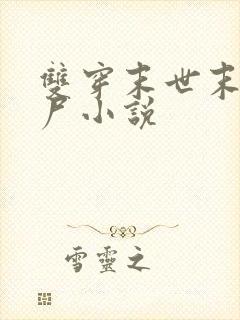 雙穿末世末
戶小說
雪靈之